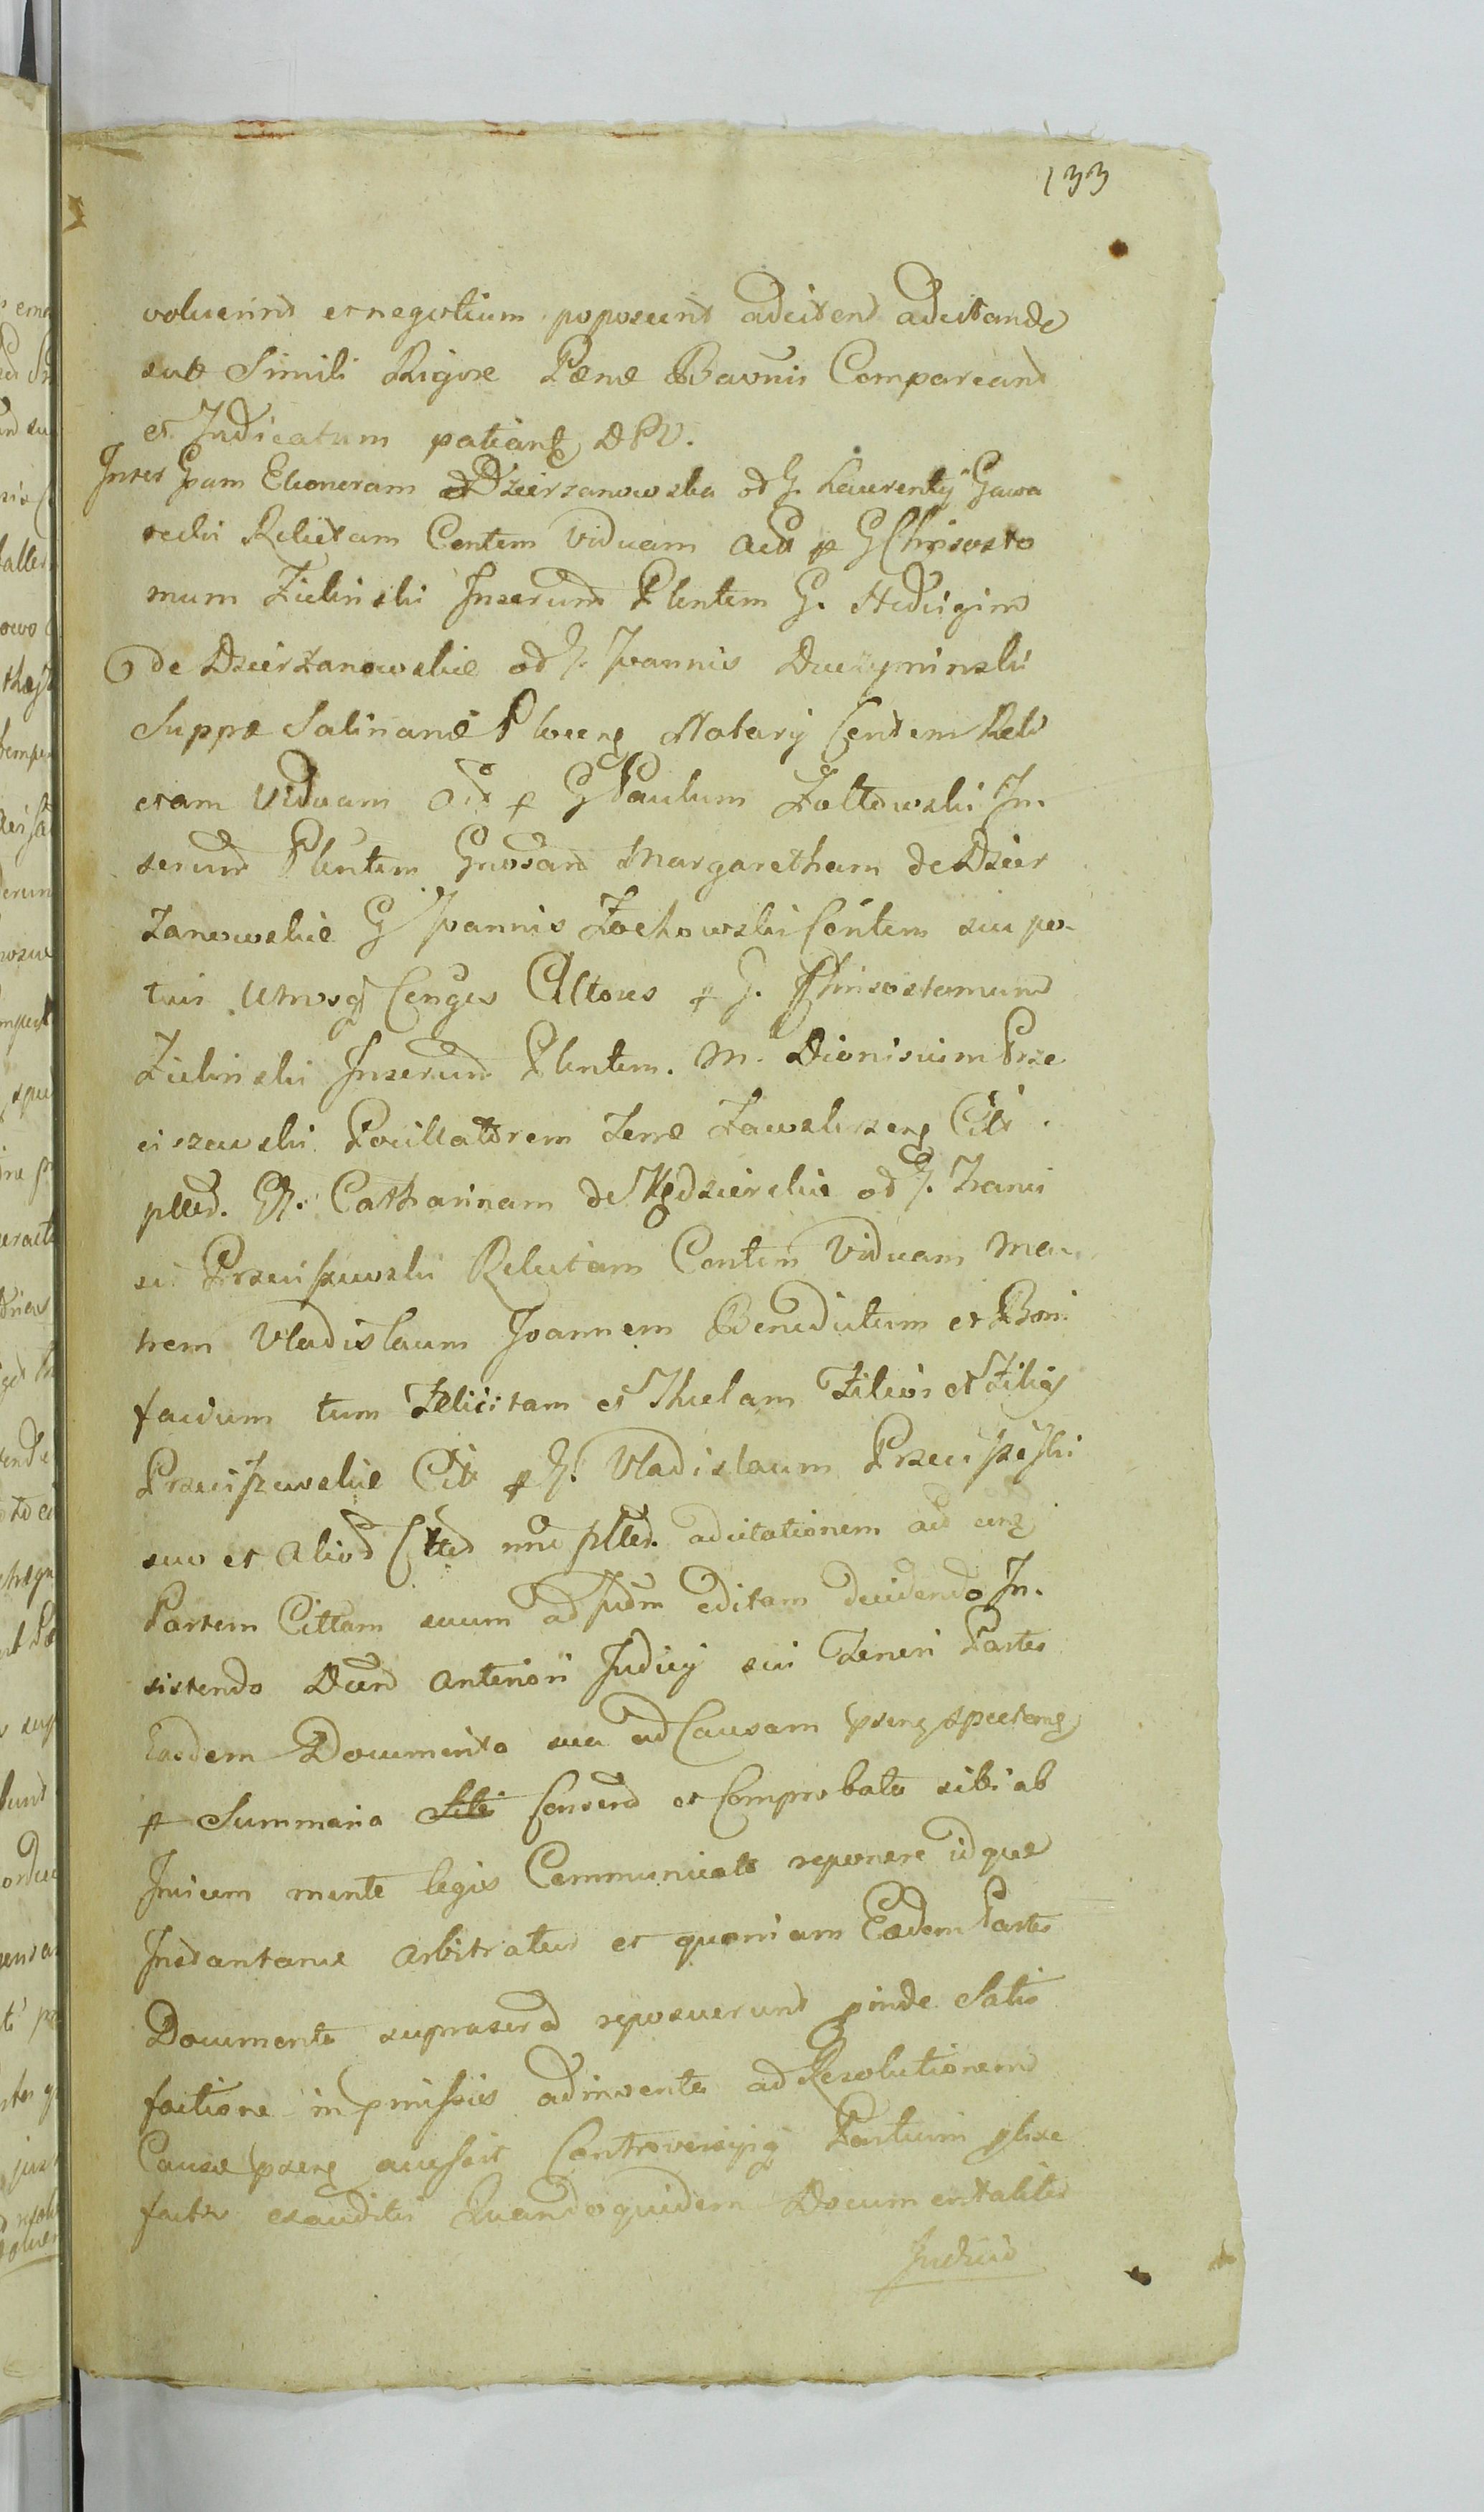 133
voluerint et negotium poposcerit adcitent adcitandę
sub Simili Rigore Pænæ Bannis Compareant
et Judicatum patiantę DPV.
Inter Gsam Eleoneram de Dzierzanowska od G. Laurentij Gawa
recki Relictam Contem Viduam Act p G Chrisosto
mum Zielinski Inserund Plentem G. Hedvigim
de Dzierzanowskie od G. Joannis Duczyminski
Suppæ Salinariæ Plocenę Notarij Contem Reli
ctam Viduam Act p G Paulum Zołtowski In-
serund Plentem Gnosam Margaretham de Dzier
zanowskie G Joannis Zochowski Contem sui po-
tius utriosq Cengis Actores p G. Chrisostomum
Zielinski Inserund Plentem. M. Dionisium Prze
ciszewski Pocillatorem Terræ Zawskrzenę Citt.
ptted. G. Catharinam de Kędzierskie od G. Franci
sci Przeciszewski Relictam Contem Viduam Ma-
trem Vladislaum Joannem Benedictum et Boni
facium tum Felicitam et Theclam Filios et Filias
Przeciszewskie Citt p G. Vladislaum Przeciszewski
suo et aliod Cttod nne ptted. adcitationem ad
Partem Cittam suum ad Judm editam decidendo In-
sistendo Decrd anteriori Judicij sui Teneri Partes
Easdem Documenta sua ad Causam psenę spectanę
p Summaria Conserd et Comprobata sibi ab
Invicem mente legis Communicato reponere idque
Instantanæ arbitratur et quoniam Eædem Partes
Documenta supraserd reposuerunt pinde Satis
factione in pmissis adinventa ad Resolutionem
Causæ psenę accessit Controversysq Partium plixe
factis exauditis Quandoquidem Documentaliter
Judicio